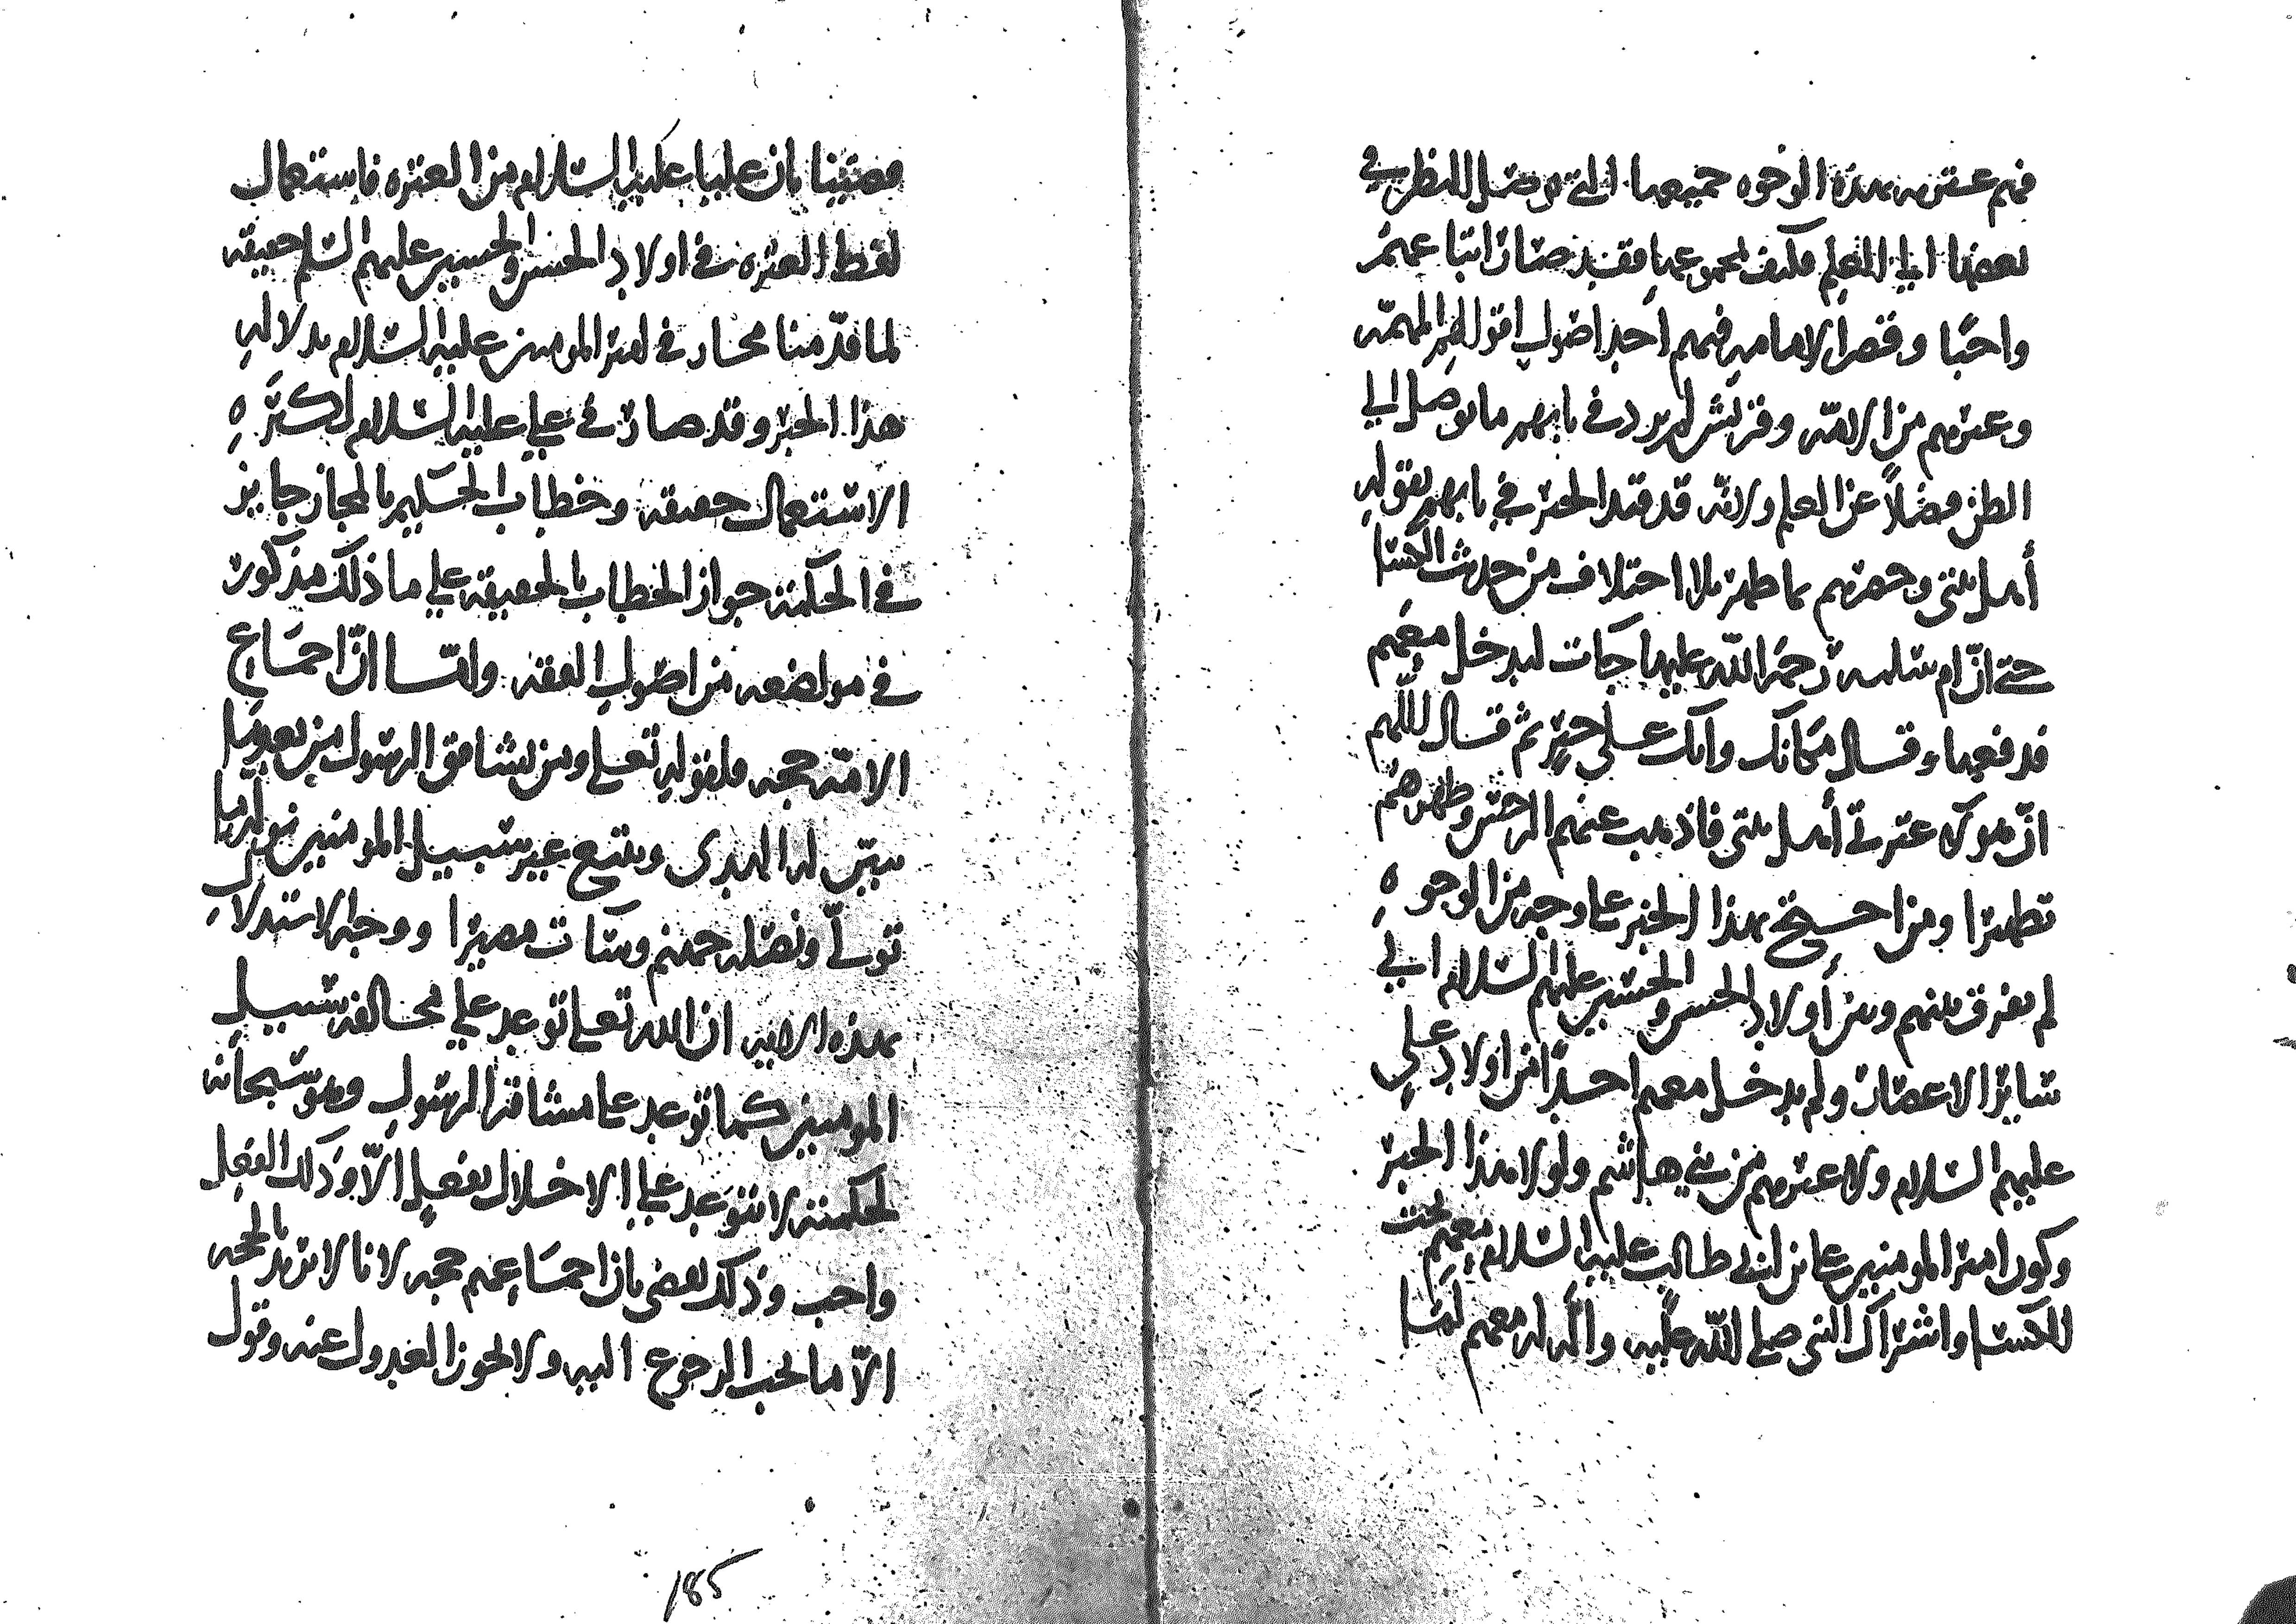 فهم عترته بهذه الوجوه جميعها التي يوصل النظر في
بعضها الى العلم فكيف بمجموعها فقد صار اتباعهم
واجبا وقصر الامامه فيهم احد اصول اقوالهم المهمه
وغيرهم من الامه وقريش لم يرد في بابهم ما يوصل الى
الظن فضلا عن العلم ولانه قد قيد الخبر في بابهم بقوله
أهل بيتي وحصرهم بما ظهر بلا اختلاف من حديث الكسا
حتى ان ام سلمه رحمة الله عليها جات لتدخل معهم
فدفعها وقال مكانك وانك على خير ثم قال اللهم
ان هولاء عترتي أهل بيتي فاذهب عنهم الرجس وطهرهم
تطهيرا ومن احتج بهذا الخبر على وجه من الوجوه
لم يفرق بينهم وبين أولاد الحسن والحسين عليهم السلام الى
سائر الاعصار ولم يدخل معهم احدا من اولاد علي
عليهم السلام ولا غيرهم من بني هاشم ولولا هذا الخبر
وكون امير المومنين علي بن ابي طالب عليه السلام معهم تحت
الكسا واشتراك النبي صلى الله عليه واله له معهم لما
قضينا بان عليا عليه السلام من العتره فاستعمال
لفظ العتره في اولاد الحسن والحسين عليهم السلم حقيقه
لما قدمنا مجاز في امير المومنين عليه السلام بدلاله
هذا الخبر وقد صار في علي عليه السلام لكثره
الاستعمال حقيقه وخطاب الحكيم بالمجاز جايز
في الحكمه جواز الخطاب بالحقيقه على ما ذلك مذكور
في مواضعه من اصول الفقه واما ان اجماع
الامه حجه فلقوله تعلى ومن يشاقق الرسول من بعد ما
تبين له الهدى ويتبع غير سبيل المومنين نوله ما
تولى ونصله جهنم وسات مصيرا ووجه الاستدلال
بهذه الايه ان الله تعلى توعد على مخالفه سبيل
المومنين كما توعد على مشاقة الرسول وهو سبحانه
لحكمته لا يتوعد على الاخلال بفعل الا وذلك الفعل
واجب وذلك يقضي بان اجماعهم حجه لانا لا نريد بالحجه
الا ما يجب الرجوع اليه ولا يجوز العدول عنه وقول
185